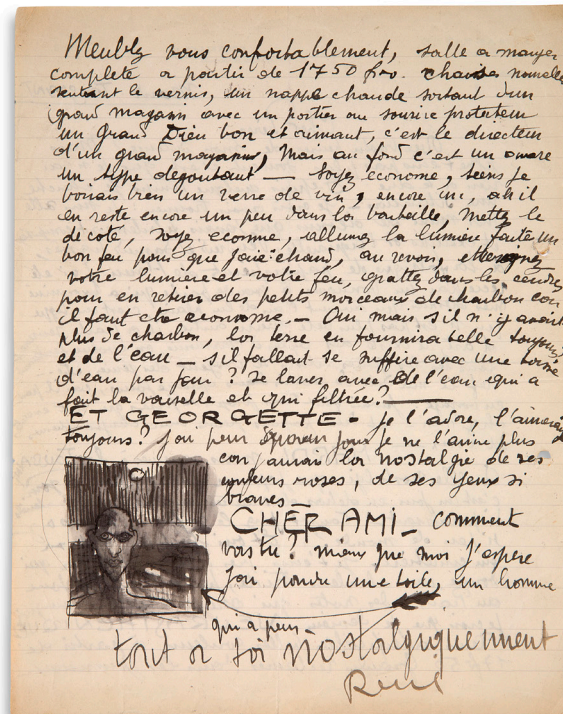 Meublez vous confortablement, salle a manger
complete a partir de 1750 frs. chaise nouvelle
sentant le vernis, un nappe chaude sortant d'un
grand magasin avec un portier au sourire protecteur
un Grand Dieu bon et aimant, c'est le directeur
d'un grand magasin, mais au fond c'est un avare
un type degoutant — Soyez econome, tiens je
boirais bien un verre de vin, encore un, ah il
en reste encore un peu dans la bouteille, mettez le
de coté, soyez econme, allumez la lumière faite un
bon feu pour que j'aie chaud, au revoir, eteignez
votre lumière et votre feu, grattez dans les cendres
pour en retirer des petits morceaux de charbon car
il faut etre econome. — Oui mais s'il n'y avait
plus de charbon, la terre en fournira t'elle toujours
et de l'eau — s'il fallait se suffire avec une
d'eau par jour? Se laver avec de l'eau qui a
fait la vaiselle et qui filtrée? —
ET GEORGETTE - je l'adore, l'aimerai
toujours? j'ai peur qu'un jour je ne l'aime plus
car j'aurai la nostalgie de ses
couleurs roses, de ses yeux si
braves —
CHER AMI — comment
vas tu? mieux que moi j'espère
J'ai pondu une toile, un homme
qui a peur.
tout a toi nostalgiquement
René